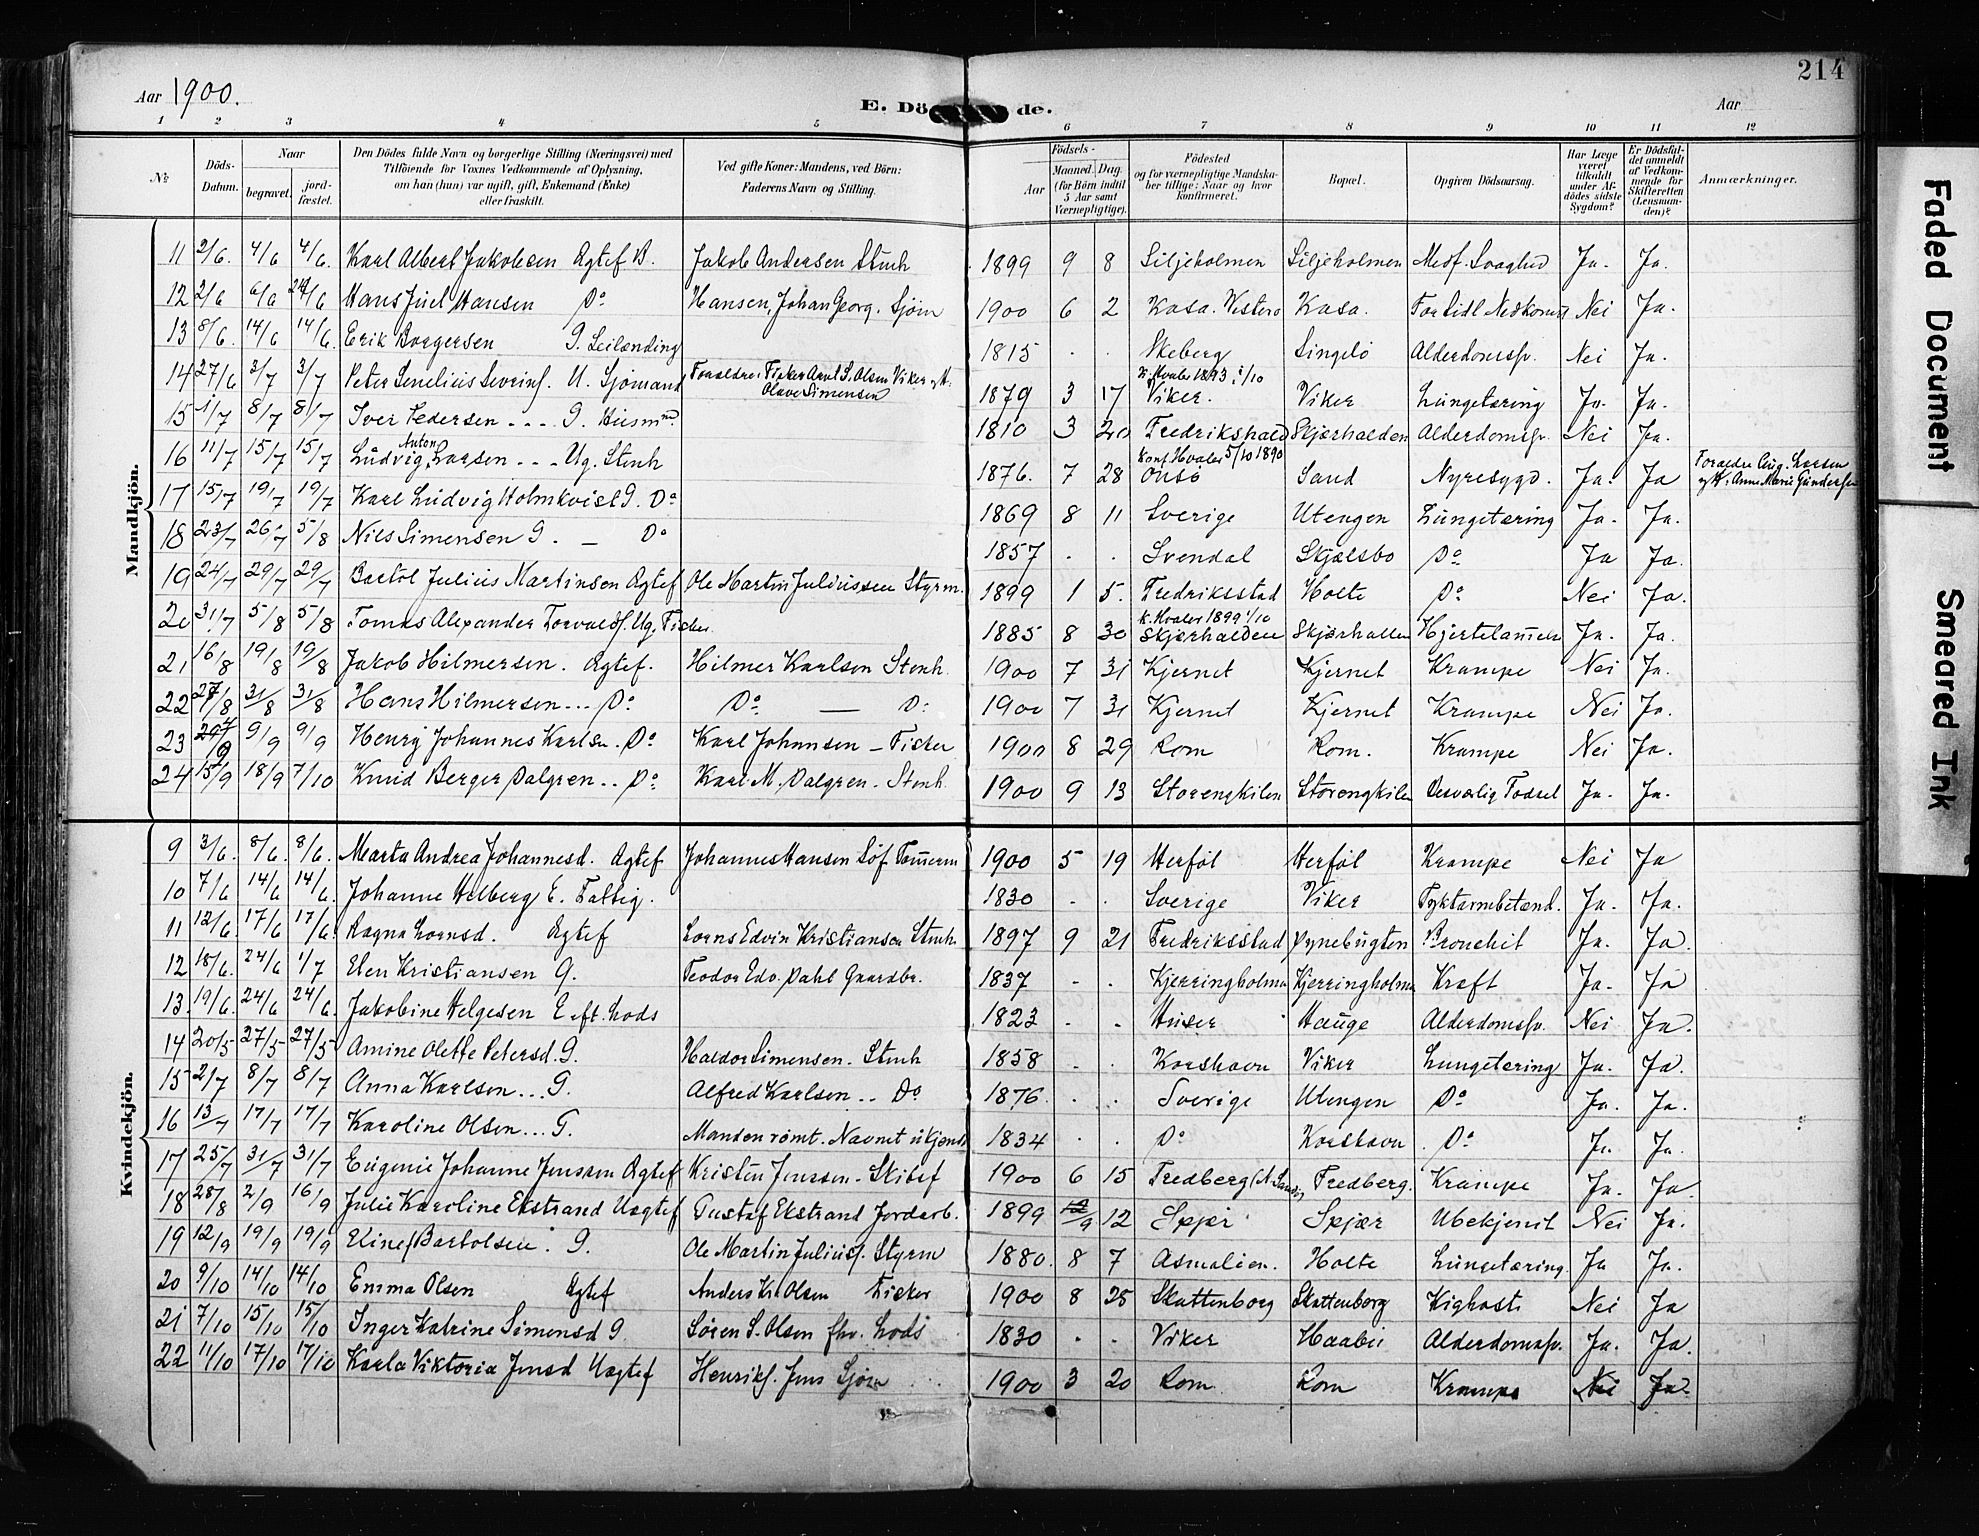 214
Aar 1900.
E. Dö de.
Aar
1 2 3 4 5 6 7 8 9 10 11 12
No
Döds-Datum.
Naar
begravet.
jord-fæstet.
Den Dödes fulde Navn og borgerlige Stilling (Næringsvei) med
Tilföiende for Voxnes Vedkommende af Oplysning,
om han (hun) var ugift, gift, Enkemand (Enke)
eller fraskilt.
Ved gifte Koner: Mandens, ved Börn:
Faderens Navn og Stilling.
Födsels-
Aar
Maaned. Dag.
(for Börn indtil
5 Aar samt
Værnepligtige).
Födested
og for værnepligtige Mandska-
ber tillige: Naar og hvor
konfirmeret.
Bopæl.
Opgiven Dödsaarsag.
Har Læge
været
tilkaldt
under Af-
dödes sidste
Sygdom?
Er Dödsfal-
det anmeldt
af Vedkom-
mende for
Skifteretten
(Lensman-
den)?
Anmærkninger.
Mandkjön.
11 2/6. 4/6 4/6. Karl Albert Jakobsen Ægtef B. Jakob Andersen Stenh 1899 9 8 Siljeholmen Siljeholmen Medf. Svaghed Ja. Ja.
12 2/6 6/6 24/6 Hans Juel Hansen Do Hansen, Johan Georg. Sjöm 1900 6 2 Kasa. Vesterö Kasa. For tidl Nedkomst Nei Ja.
13 8/6. 14/6 14/6. Erik Borgersen G. Leilending 1815 . . Skeberg Singelö Alderdomssv. Nei Ja.
14 27/6 3/7 3/7 Peter Senelius Severins. U. Sjömand Foraldre: Fisker Arnt S. Olsen Viker og H. Olave Simensen 1879 3 17 K. Hvaler 1893 1/10 Viker. Viker Lungetæring Ja. Ja.
15 1/7 8/7 8/7 Iver Pedersen --- G. Husm. 1810 3 20 Fredrikshald Skjærhalden Alderdomssv. Nei Ja.
16 11/7 15/7 15/7 Ludvig Anton Larsen --- Ug. Stenh 1876. 7 28 Konf. Hvaler 5/10 1890 Onsö Sand Nyresygd. Ja. Ja Foraldre Aug. Larsen og H. Anne Marie Gundersen
17 15/7 19/7 19/7 Karl Ludvig Holmkvist G. Do 1869 8 11 Sverige Utengen Lungetæring Ja. Ja.
18 23/7 26/7 5/8 Nils Simensen G. — Do 1857 . . Svendal Skjelsbo Do Ja Ja.
19 24/7 29/7 29/7 Bartol Julius Martinsen Ægtef Ole Martin Juliussen Styrm. 1899 1 5. Fredriksstad Holte Do Nei Ja.
20 31/7 5/8 5/8 Tomas Alexander Torvalds. Ug. Fisker 1885 8 30 K. Hvaler 1899 1/10 Skjærhalden Skjærhallen Hjertelammelse Ja. Ja.
21 16/8 19/8 19/8 Jakob Hilmersen. Ægtef. Hilmer Karlsen Stenh 1900 7 31 Kjernet Kjernet Krampe Nei Ja.
22 27/8 31/8 31/8 Hans Hilmersen... Do Do — Do 1900 7 31 Kjernet Kjernet Krampe Nei Ja.
23 4/9 9/9 9/9 Henry Johannes Karlsen. Do Karl Johansen – Fisker 1900 8 29 Rom Rom. Krampe Nei Ja.
24 15/9 18/9 7/10 Knud Berger Dalgren... Do Karl M. Dalgren - Stenh. 1900 9 13 Storengkilen Storengkilen Besværlig Fødsel Ja. Ja.
Kvindekjön.
9 3/6. 8/6. 8/6. Marta Andrea Johannesd. Ægtef Johannes Hansen Söf Tömerm 1900 5 19 Herföl Herföl Krampe Nei Ja
10 7/6 14/6 14/6. Johanne Helberg E. Fattig. 1830 - . Sverige Viker Tyktarmbetænd. Ja. Ja.
11 12/6. 17/6 17/6. Ragna Lornsd. Ægtef Lorns Edvin Kristiansen Stenh. 1897 9 21 Fredriksstad Dynebugten Bronchit Ja. Ja.
12 18/6. 24/6 1/7 Elen Kristiansen G. Teodor Edv. Dahl Gaardbr. 1837 - . Kjerringholmen Kjerringholmen Kræft Ja. Ja
13. 19/6. 24/6 24/6. Jakobine Helgesen E. eft. Lods 1823 . . Huser Hauge Alderdomssv. Nei Ja.
14 20/5 27/5 27/5 Amine Olette Petersd. G. Haldor Simensen. Stenh 1858 . . Korshavn Viker Lungetæring Ja. Ja.
15 2/7 8/7 8/7 Anna Karlsen... G. Alfred Karlsen.. Do 1876. . . Sverige Utengen Do Ja. Ja.
16 13/7 17/7 17/7 Karoline Olsen... G. Manden römt. Navnet ukjendt 1834 . . Do Korshavn Do Ja Ja.
17 25/7 31/7 31/7 Eugenie Johanne Jenssen Ægtef Kristen Jenssen - Skibsf 1900 6 15 Fredberg (N. Sandö) Fredberg. Krampe Ja. Ja.
18 28/8 2/9 16/9 Julie Karoline Ekstrand Uægtef Gustaf Ekstrand Jordarb. 1899 9 12 Spjær Spjær Ubekjent Nei Ja.
19 12/9 19/9 19/9 Eline Bartolsen. G. Ole Martin Julius. Styrm 1880. 8 7 Asmalöen. Holte Lungetæring. Ja Ja.
20 9/10 14/10 14/10 Emma Olsen Ægtef Anders Kr. Olsen Fisker 1900 8 25 Skattenborg Skattenborg Kighoste Nei Ja
21 7/10 15/10 15/10 Inger Katrine Simensd G Sören S. Olsen fhv. Lods 1830 . . Viker Haabu Alderdomssv. Ja. Ja.
22 11/10 17/10 17/10 Karla Viktoria Jensd Uægtef Henriks. Jens Sjöm 1900 3 20 Rom Rom Krampe Nei Ja.
Faded Document
Smeared Ink